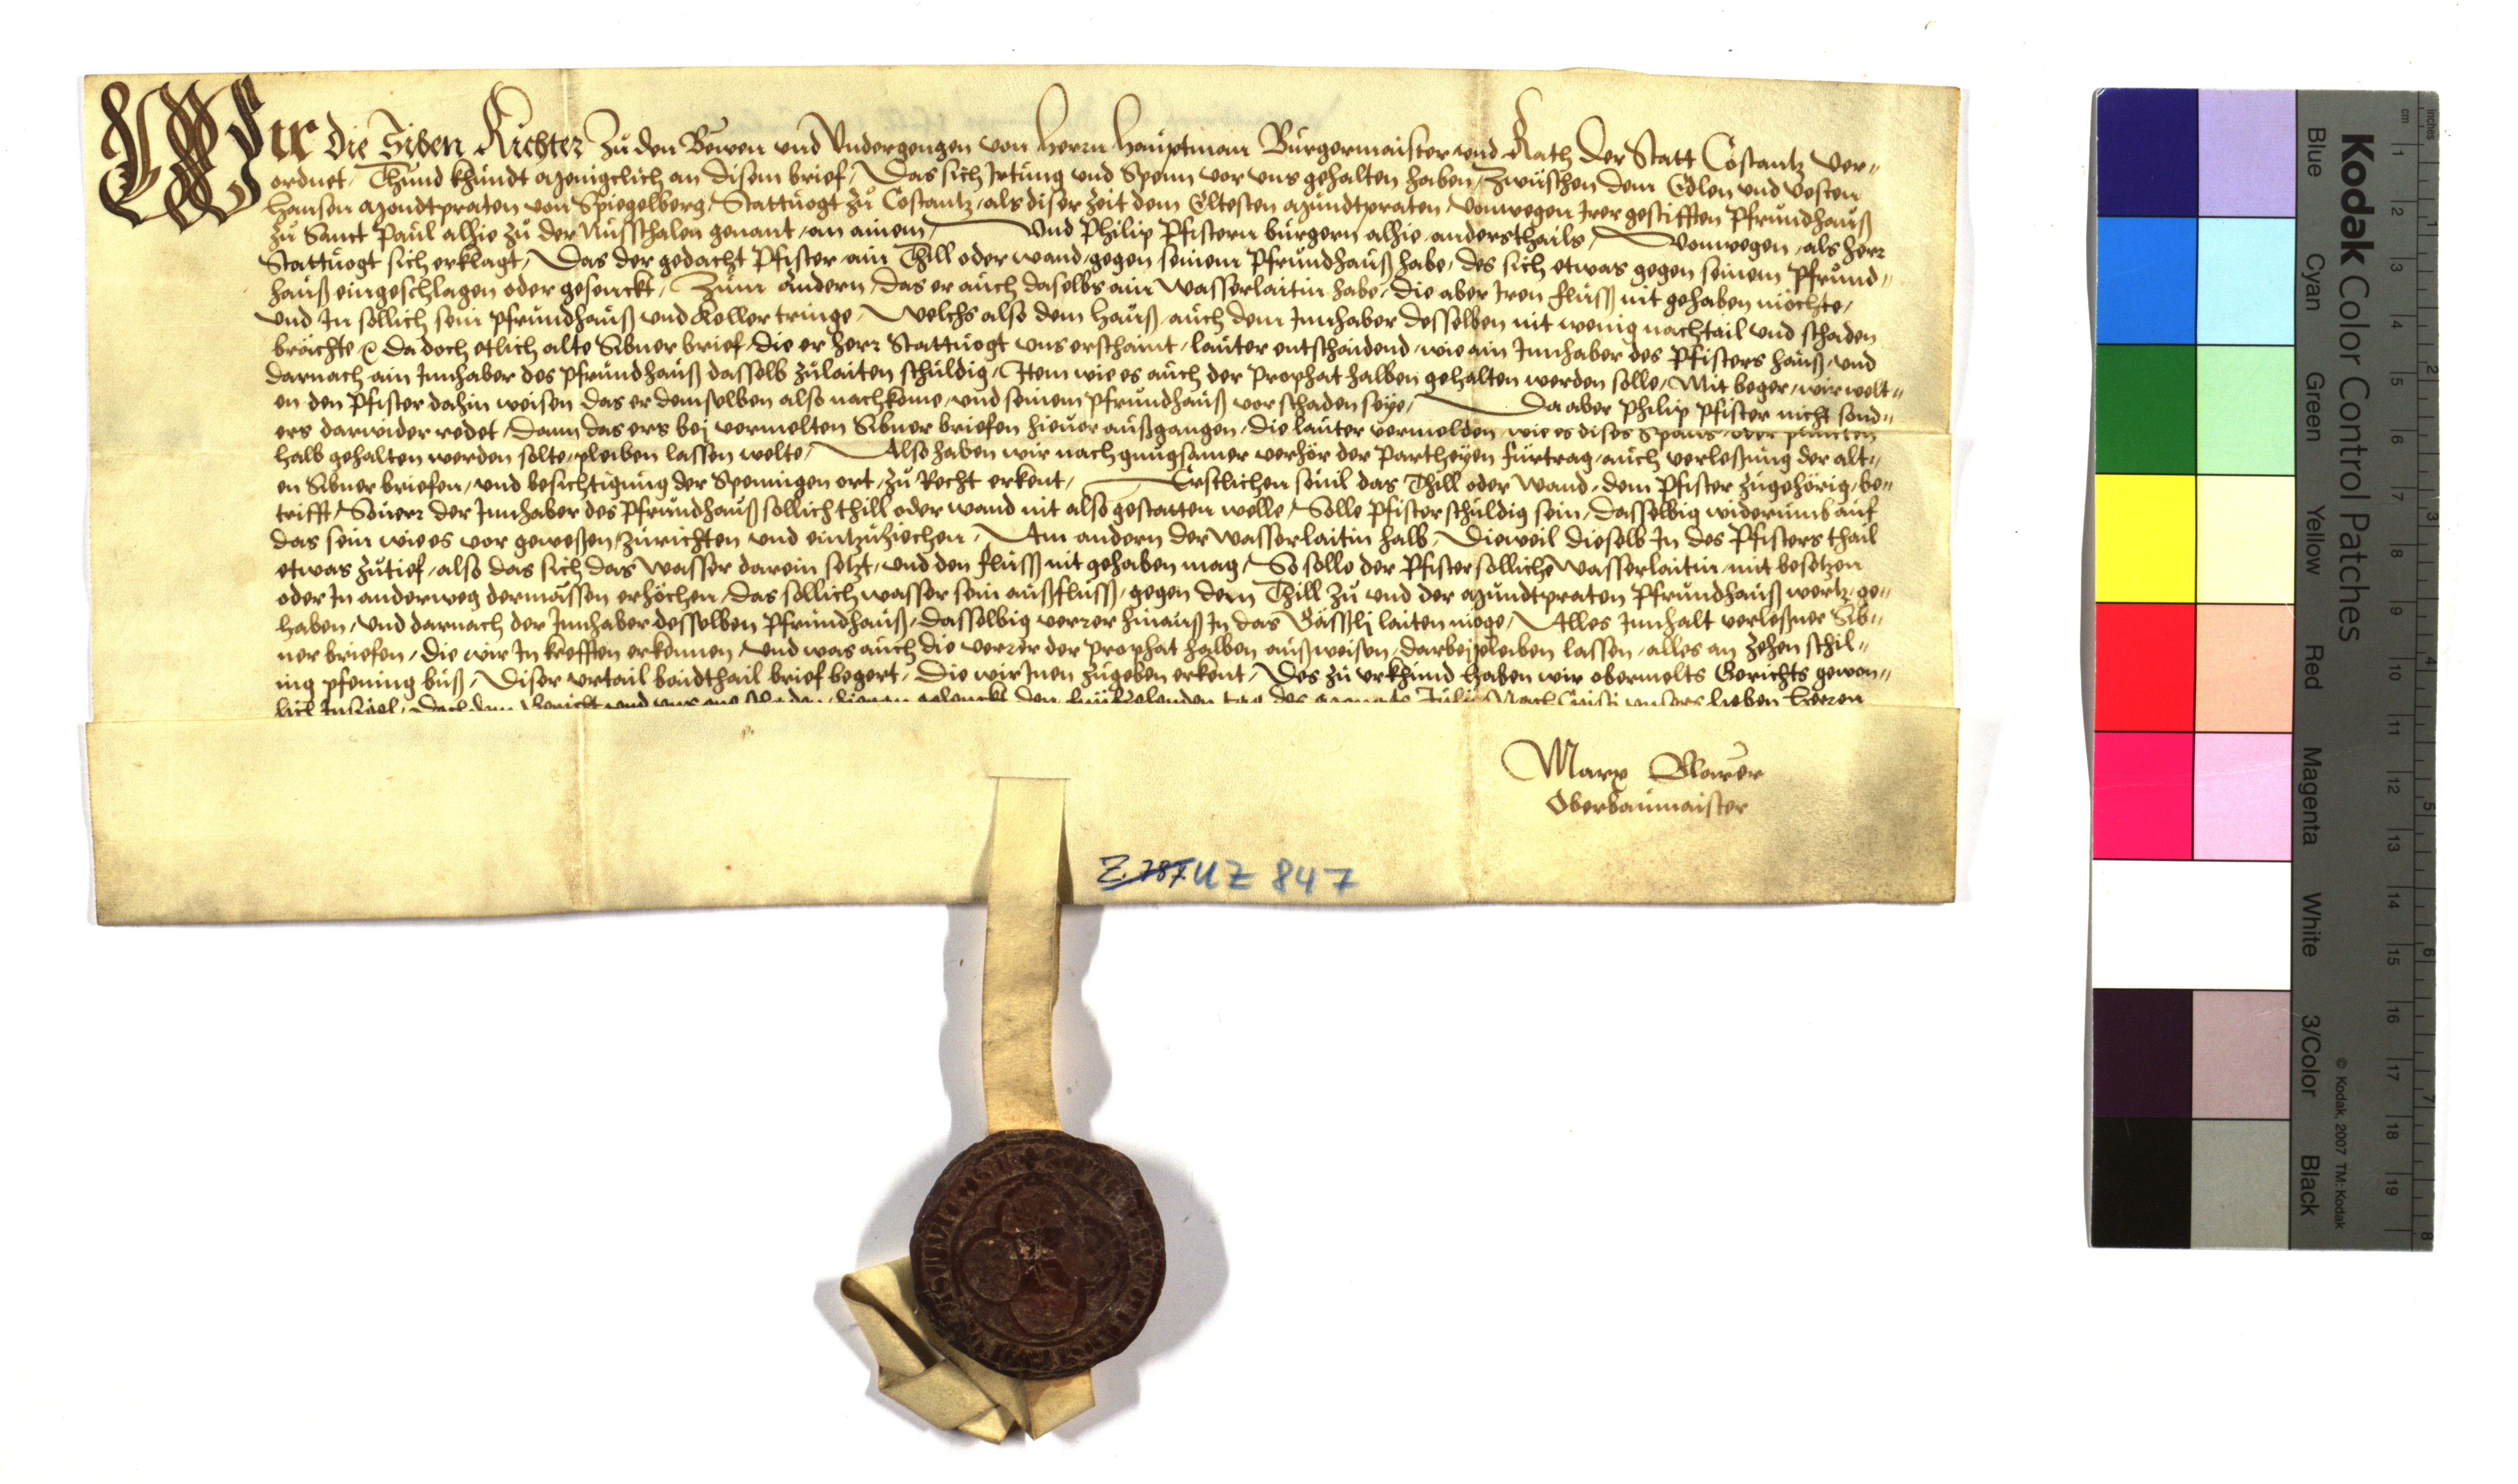 Wir die Siben Richter zů den Bewen und Undergengen von Herrn Hauptman Burgermaister und Rath der Statt Costantz ver„
ordnet, Thund khundt menigclich an disem brief, Das sich Irtung und Spenn vor uns gehalten haben, Zwüschen dem Edlen und Vesten
Hansen Mondtpraten von Spiegelberg, Stattuogt zů Costantz, als diser zeit dem Eltesten Mundtpraten, vonwegen Irer gestifften Pfrundhauß
zů Sanct Paul alhie zů der Nusschalen genant, an ainem, Und Philip Pfistern burgern alhie anderstthails, Vonwegen, als herr
Stattuogt sich erklagt, Das der gedacht Pfister ain Thill oder wand, gegen seinem Pfrundhauß habe, des sich etwas gegen seinem Pfrund„
hauß eingeschlagen oder gesenckt, Zum andern, das er auch daselbs ain Wasserlaitin habe, die aber Iren fluss nit gehaben möchte,
und In sollich sein pfrundhauß und Keller tringe, Welchs also dem hauß, auch dem Innhaber desselben nit wenig nachtail und schaden
brächte, Da doch etlich alte Sibner brief, die er herr Stattuogt uns erschaint, lauter entschaidend, wie ain Innhaber des Pfisters hauß, und
darnach ain Innhaber des pfrundhauß dasselb zulaiten schuldig, Item wie es auch der Prophat halben gehalten werden solle, Mit beger, wir welt„
en den Pfister dahin weisen das er demselben also nachkome, und seinem pfrundhauß vor schaden seye, Da aber Philip Pfister nicht sond„
ers darwider redet, Dann das ers bej vermelten Sibner briefen hieuor außgangen, die lauter vermelden wie es dises Spans, puncten
halb gehalten werden solte, pleiben lassen welte, Also haben wir nach gnugsamer verhör der Partheyen fürtrag, auch verleßung der alt„
en Sibner briefen, und besichtigung der Spennigen ort, zů Recht erkent, Erstlichen souil das Thill oder Wand, dem Pfister zugehörig, be„
trifft, Souerr der Innhaber des Pfrundhauß sollich thill oder wand nit also gestatten welle, Solle Pfister schuldig sein, dasselbig widerumb auf
das sein wie es vor geweßen, zurichten und eintzuziechen, Am andern der wasserlaitin halb, Dieweil dieselb In des Pfisters thail
etwas zutief, also das sich das Wasser darein setzt, und den fluss nit gehaben mag, So solle der Pfister sollichē wasserlaitin, mit besetzen
oder In anderweg dermassen erhöchen, das sollich wasser sein außfluss, gegen dem Thill zů und der Mundtpraten Pfrundhauß wertz, ge„
haben, und darnach der Innhaber desselben Pfrundhauß, dasselbig verrer hinauß In das Gässlj laiten möge, Alles Innhalt verleßner Sib„
ner briefen, die wir In krefften erkennen, und was auch die verrer der prophat halben außweisen, darbej pleiben lassen, alles an zehen schil„
ing pfening buß, Diser urtail baidthail brief begert, Die wir Inen zugeben erkent, Des zů urkhund haben wir obermelts Gerichts gewon„
lich Insigel, Doch dem Gericht und uns one schaden, hieran gehenckt, den tag des Monats Julij Nach Cristi unsers lieben Herren
Marx Blarer
Oberbaumaister
Z. 787. UZ 847
Kodak Color Control Patches
Blue Cyan Green Yellow Red Magenta White 3/Color Black
© Kodak, 2007 TM: Kodak
inches 1 2 3 4 5 6 7 8
cm 1 2 3 4 5 6 7 8 9 10 11 12 13 14 15 16 17 18 19